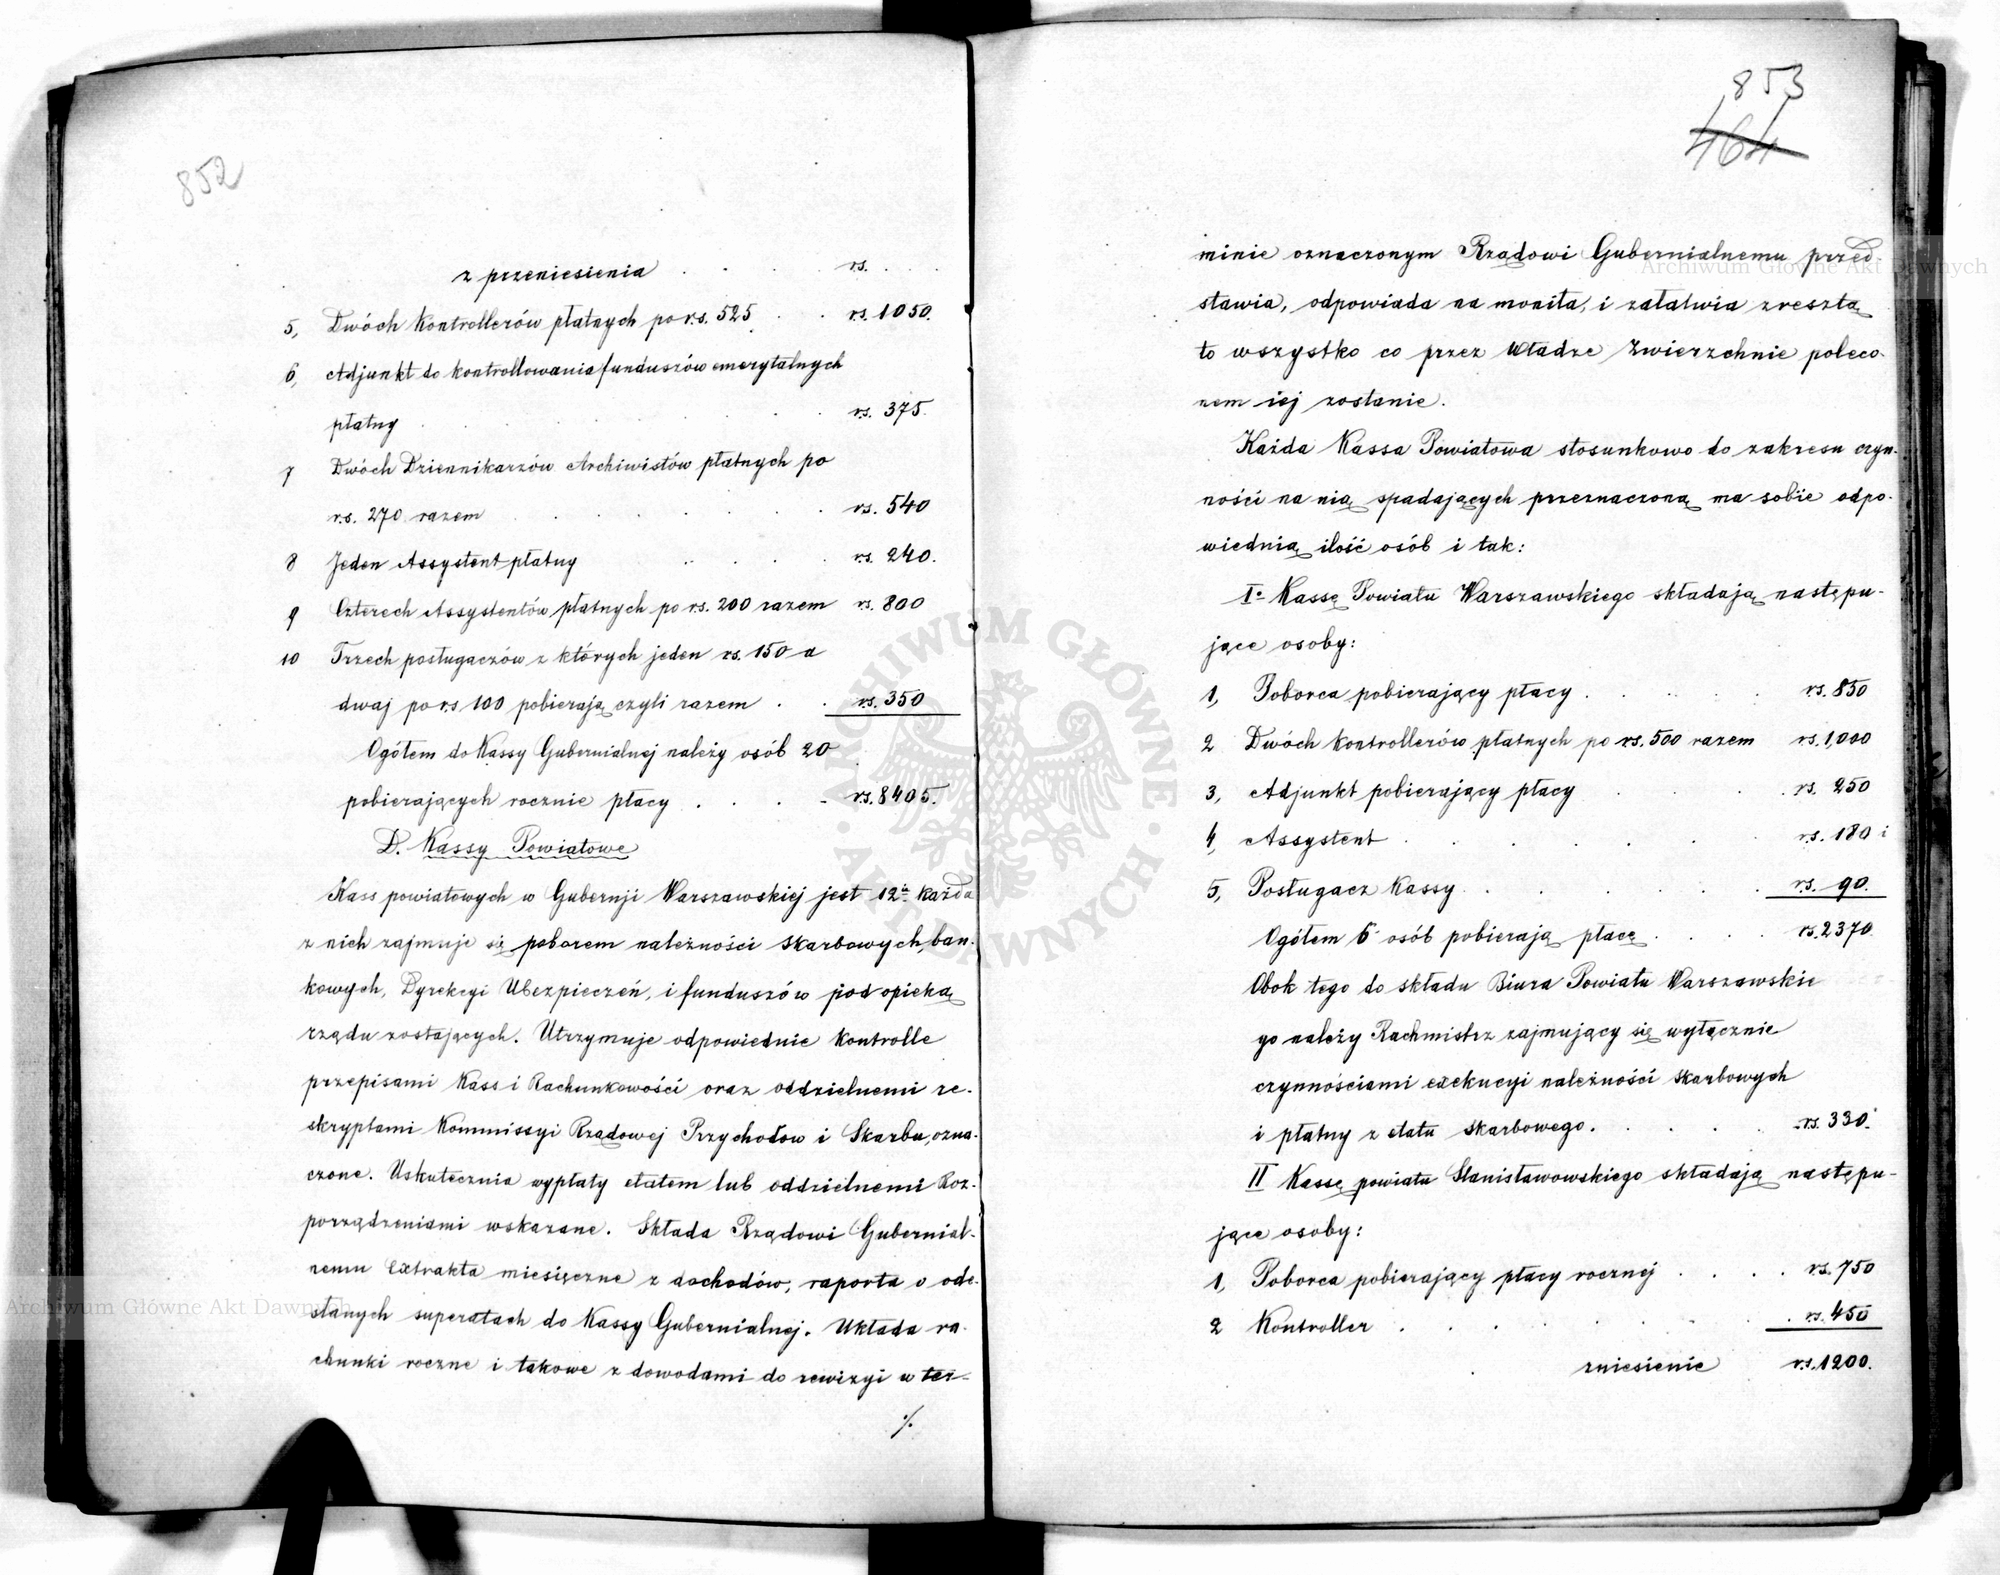 852
z przeniesienia . . . . rs. . . .
5, Dwóch Kontrollerów płatnych po r.s. 525 . . rs. 1050.
6, Adjunkt do kontrollowania funduszów emerytalnych
płatny . . . . . . rs. 375.
7 Dwóch Dziennikarzów Archiwistów płatnych po
r.s. 270 razem . . . . . . rs. 540
8 Jeden Assystent płatny . . . . rs. 240.
9 Czterech Assystentów płatnych po rs. 200 razem rs. 800
10 Trzech posługaczów z których jeden rs. 150 a
dwaj po rs 100 pobierają czyli razem . . rs. 350
Ogółem do Kassy Gubernialnej należy osób 20
pobierających rocznie płacy . . . . rs. 8405.
D. Kassy Powiatowe
Kass powiatowych w Gubernji Warszawskiej jest 12ie każda
z nich zajmuje się poborem należności skarbowych, ban-
kowych, Dyrekcyi Ubezpieczeń, i funduszów pod opieką
rządu zostających. Utrzymuje odpowiednie Kontrolle
przepisami Kass i Rachunkowości oraz oddzielnemi re-
skryptami Kommissyi Rządowej Przychodów i Skarbu, ozna-
czone. Uskutecznia wypłaty etatem lub oddzielnemi Roz-
porządzeniami wskazane. Składa Rządowi Gubernial-
nemu Extrakta miesięczne z dochodów, raporta o ode-
słanych superatach do Kassy Gubernialnej. Układa ra-
chunki roczne i takowe z dowodami do rewizyi w ter-
./.
853
464
minie oznaczonym Rządowi Gubernialnemu przed-
stawia, odpowiada na monita, i załatwia zresztą
to wszystko co przez Władze Zwierzchnie poleco-
nem iej zostanie.
Każda Kassa Powiatowa stosunkowo do zakresu czyn-
ności na nią spadających przeznaczoną ma sobie odpo-
wiednią ilość osób i tak:
Io Kassę Powiatu Warszawskiego składają następu-
jące osoby:
1, Poborca pobierający płacy . . . . rs. 850
2 Dwóch Kontrollerów płatnych po rs. 500 razem rs. 1,000
3, Adjunkt pobierający płacy . . . . rs. 250
4, Assystent . . . . . . rs. 180 i
5, Posługacz Kassy . . . . . . rs. 90.
Ogółem 6 osób pobierają płacę . . . . rs. 2370
Obok tego do składu Biura Powiatu Warszawskie
go należy Rachmistrz zajmujący się wyłącznie
czynnościami exekucyi należności skarbowych
i płatny z etatu skarbowego. . . . . rs. 330.
II Kassę powiatu Stanisławowskiego składają następu-
jące osoby:
1, Poborca pobierający płacy rocznej . . . . rs. 750
2 Kontroller . . . . . . . rs. 450
zniesienie rs. 1200.
ARCHIWUM GŁÓWNE · AKT DAWNYCH ·
Archiwum Główne Akt Dawnych
Archiwum Główne Akt Dawnych